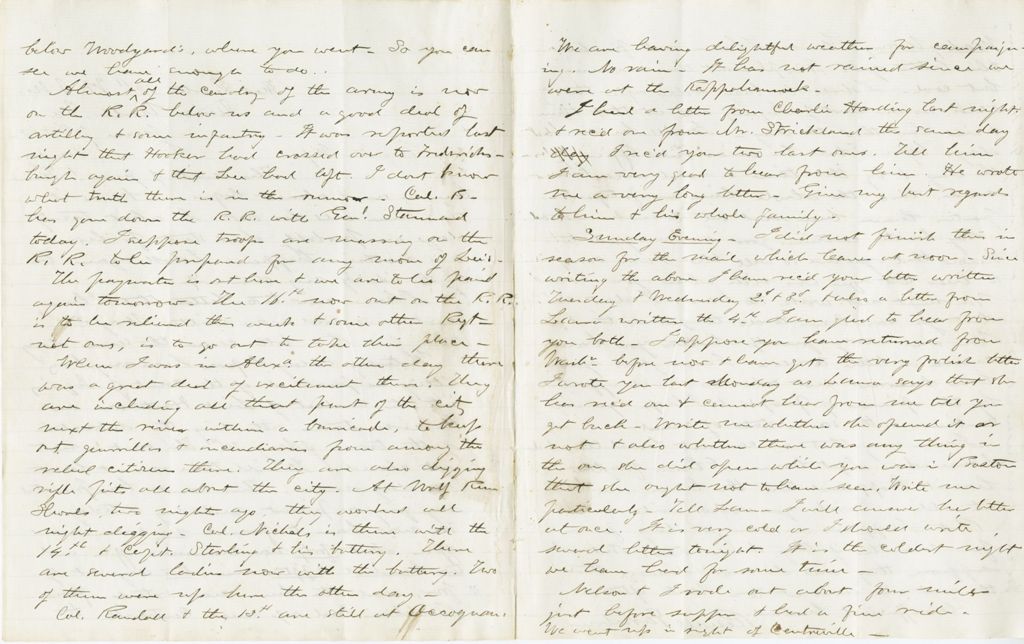 below Woodyard's, where you went - So you can
see we have enough to do..
Almost all of the cavalry of the army is now
on the R.R. below us and a good deal of
artillery & some infantry - It was reported last
night that Hooker had crossed over to Fredricks-
burgh again & that Lee had left. I dont know
what truth there is in the rumor - Col. B-
has gone down the R.R. with Genl. Stannard
today. I suppose troops are massing on the
R.R. to be prepared for any move of Lee's -
The paymaster is at here & we are to be paid
again tomorrow - The 16th now out on the R.R.
is to be relieved this week & some other Regt -
not ours, is to go out to take their place -
When I was in Alexa. the other day there
was a great deal of excitement there. They
are including all that part of the city
next the river within a barricade, to keep
out guerrillas & incendiaries from among the
rebel citizens there. They are also digging
rifle pits all about the city. At Wolf Run
Shoals, two nights ago they worked all
night digging - Col. Nichols is there with the
14th & Capt. Sterling & his battery. There
are several ladies now with the battery. Two
of them were up here the other day -
Col. Randall & the 13th are still at Occoquan.
We are having delightful weather for campaign-
ing. No rain - It has not rained since we
were at the Rappahannock -
I had a letter from Charlie Harding last night
& rec'd one from Mr. Strickland the same day
I rec'd your two last ones. Tell him
I am very glad to hear from him. He wrote
me a very long letter - Give my best regards
to him & his whole family -
Sunday Evening - I did not finish this in
season for the mail which leaves at noon - Since
writing the above I have rec'd your letter written
Tuesday & Wednesday 2d & 3d & also a letter from
written the 4th I am glad to hear from
you both - I suppose you have returned from
before now & have got the very letter
I wrote you last Monday as says that she
has rec'd one & cannot hear from me till you
get back - Write me whether she opened it or
not & also whether there was any thing in
the one she did open while you was in Boston
that she ought not to have seen. Write me
particularly - Tell I will answer her letter
at once. It is very cold or I should write
several letters tonight. It is the coldest night
we have had for some time -
Nelson & I rode out about four miles
just before supper & had a fine ride -
We went up in sight of Centreville -